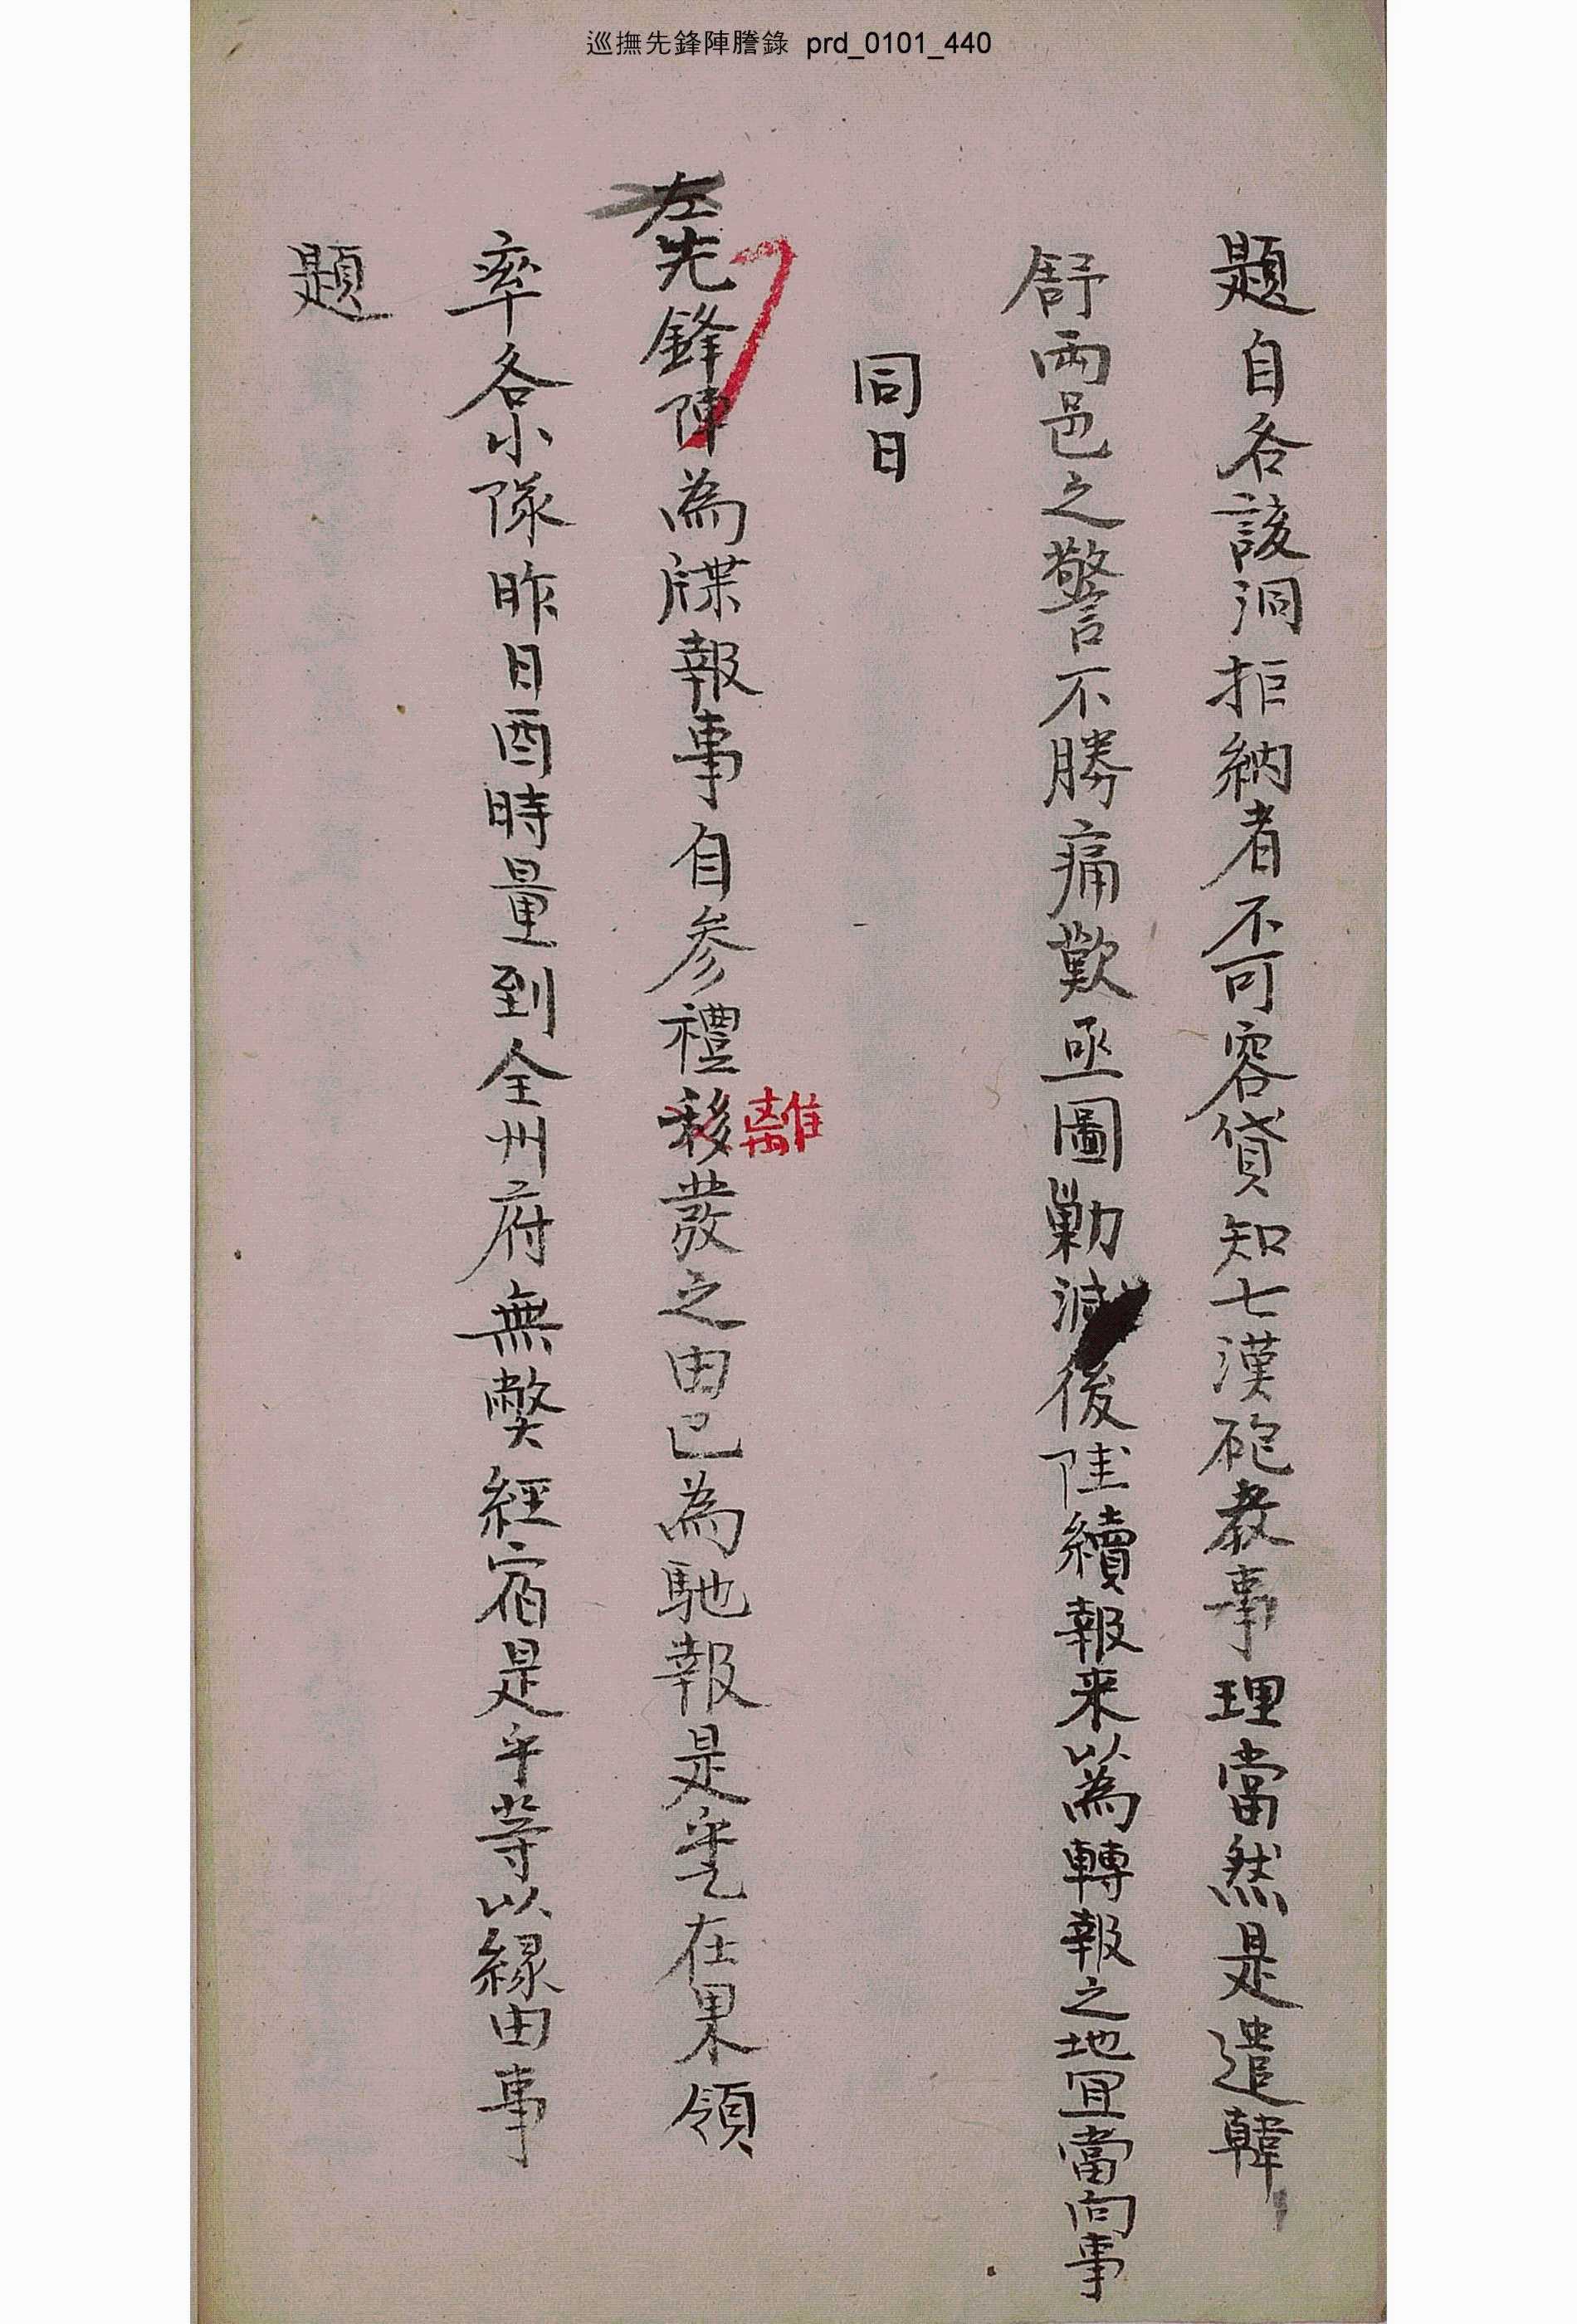 巡撫先鋒陣謄錄 prd_0101_440
題自各該洞拒納者不可容貸知七漢砲教事理當然是遣韓
舒兩邑之警不勝痛歎亟圖勦滅後陸續報来以為轉報之地宜當向事
同日
左先鋒陣為牒報事自参禮移發之由已為馳報是乎乙在果領
離
率各小隊昨日酉時量到全州府無弊經宿是乎等以緣由事
題